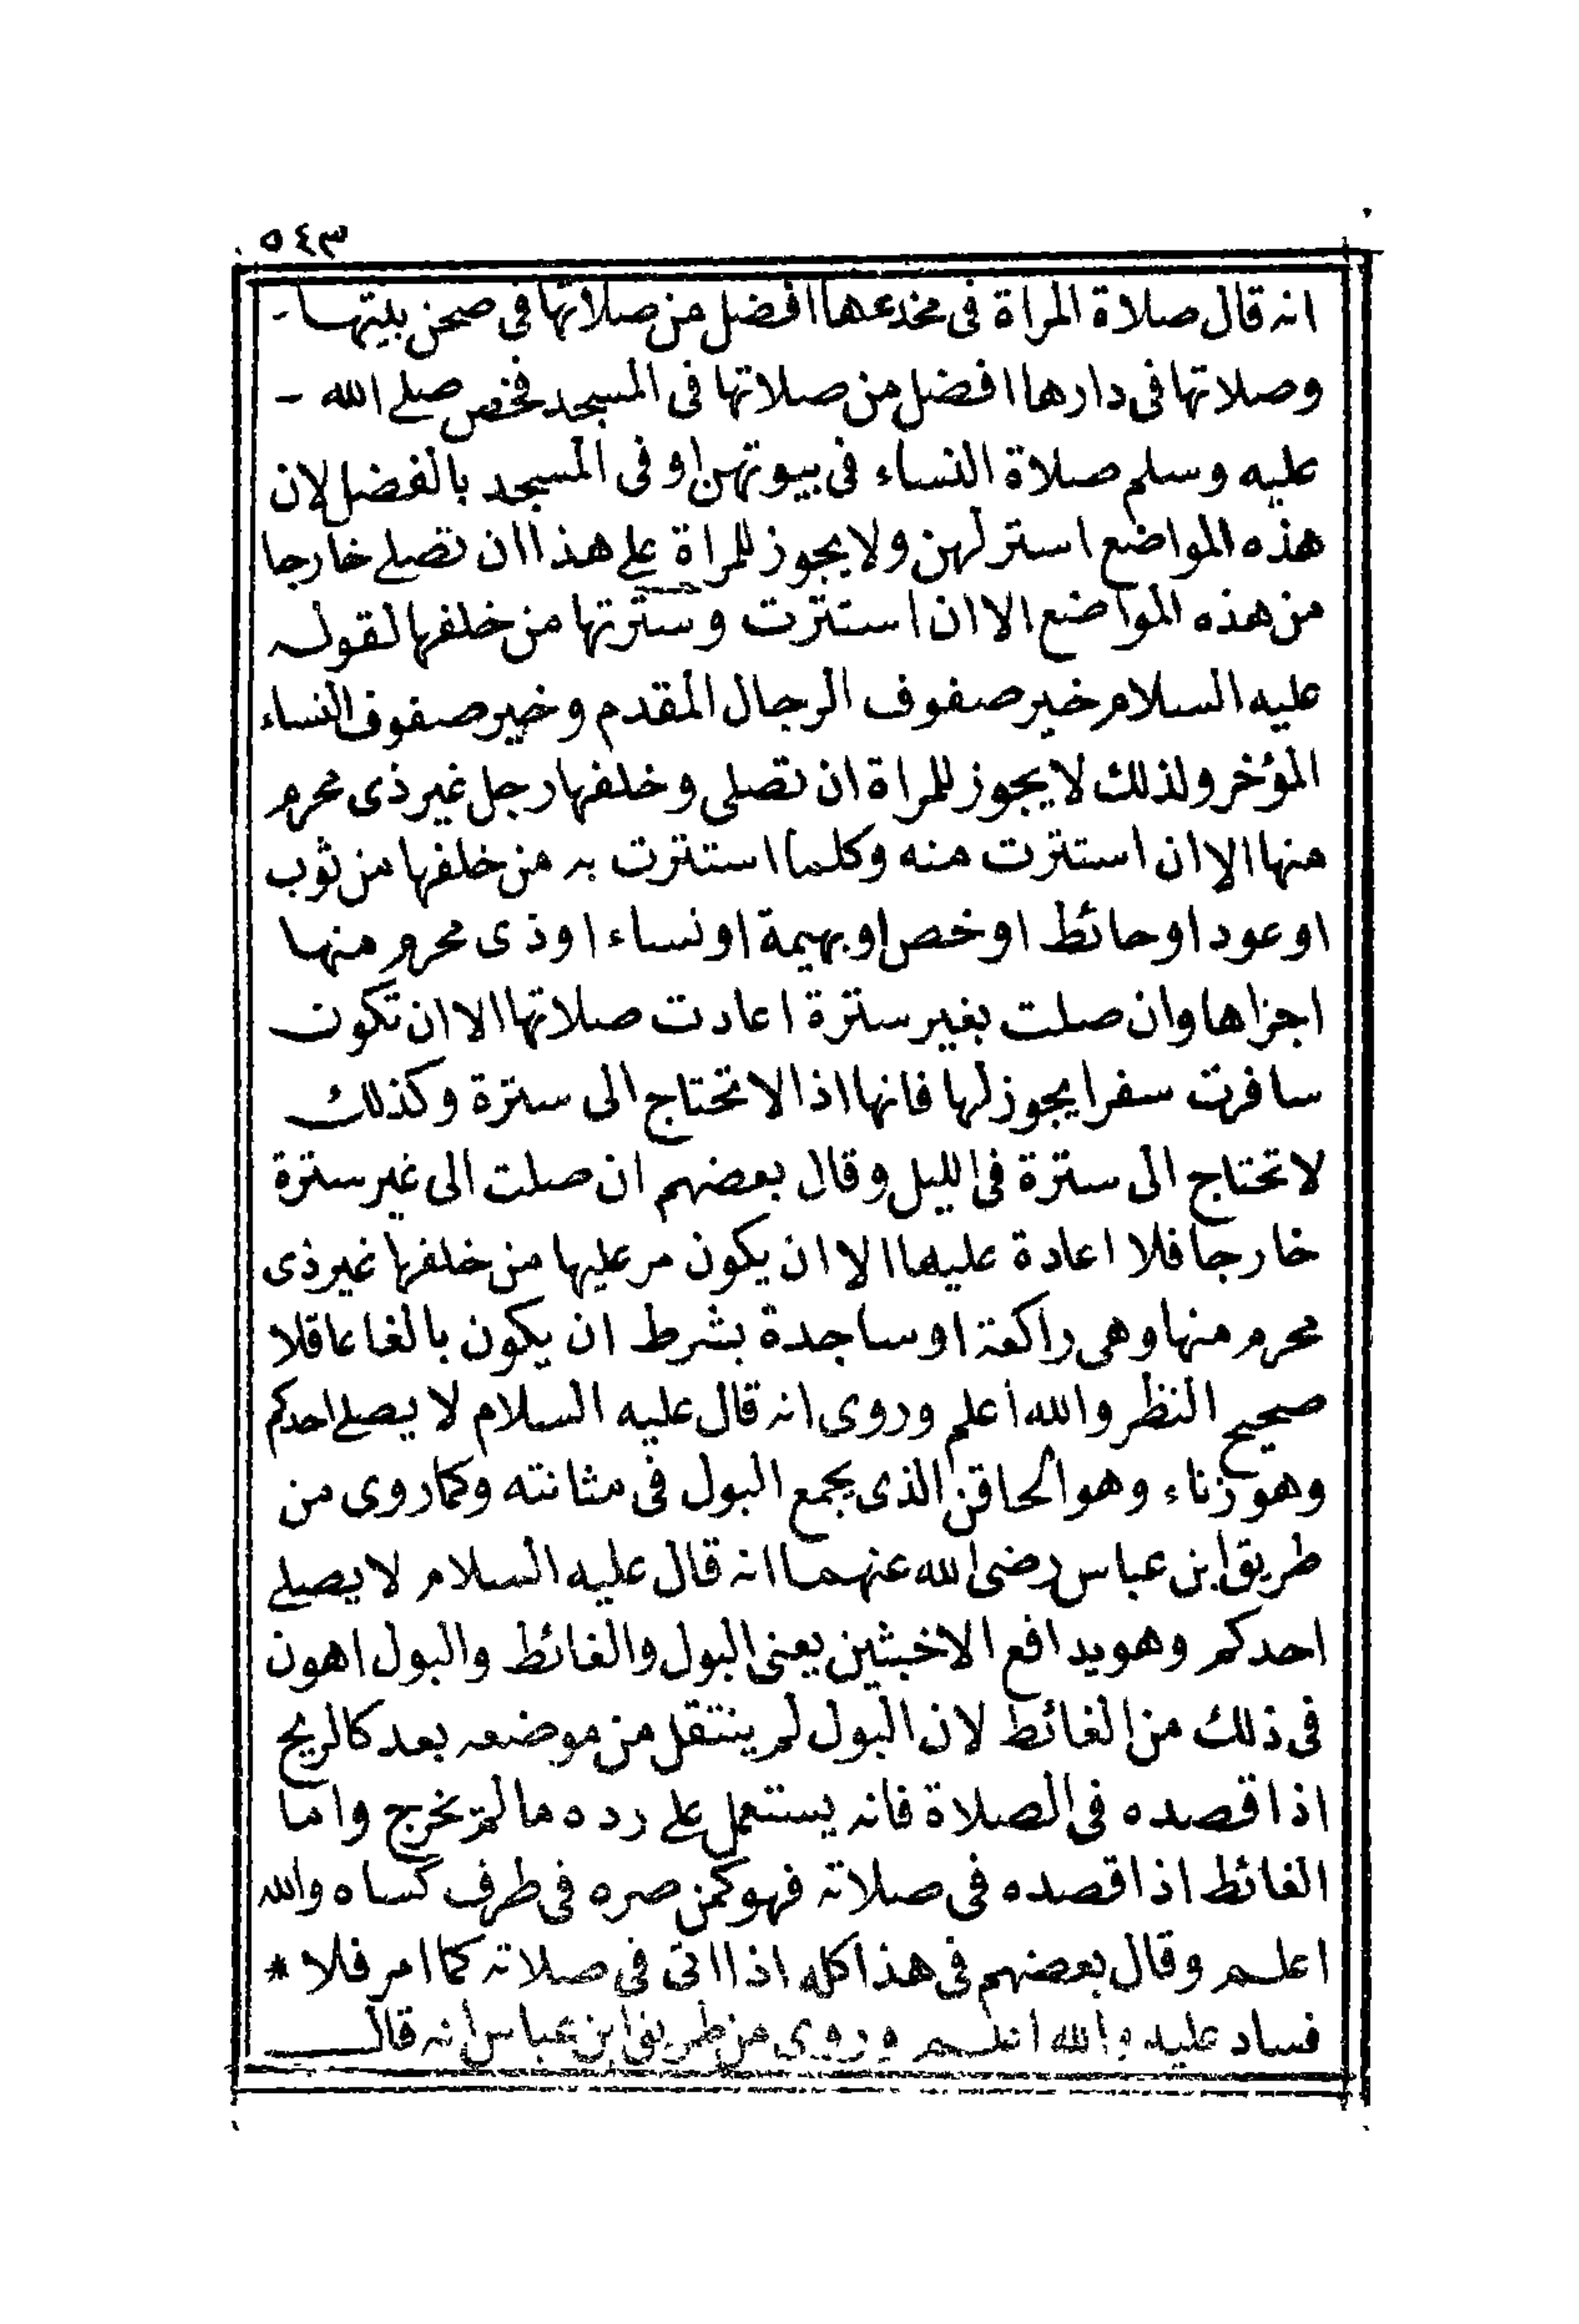 ٥٤٣
انه قال صلاة المراة فى مخدعها افضل من صلاتها فى صحن بيتها -
وصلاتها فى دارها افضل من صلاتها فى المسجد فخص صلے الله -
عليه وسلم صلاة النساء فى بيوتهن او فى المسجد بالفضل لان
هذه المواضع استر لهن ولا يجوز للمراة علے هذا ان تصلے خارجا
من هذه المواضع الا ان استترت وسترتها من خلفها لقوله
عليه السلام خير صفوف الرجال المقدم وخير صفوف النساء
المؤخر ولذلك لا يجوز للمراة ان تصلى وخلفها رجل غير ذى محرم
منها الا ان استترت منه وكلما استترت به من خلفها من ثوب
او عود او حائط او خص او بهيمة او نساء او ذى محرم منها
اجزاها وان صلت بغير سترة اعادت صلاتها الا ان تكون
سافرت سفرا يجوز لها فانها اذا لا تحتاج الى سترة وكذلك
لا تحتاج الى سترة فى الليل وقال بعضهم ان صلت الى غير سترة
خارجا فلا اعادة عليها الا ان يكون مر عليها من خلفها غير ذى
محرم منها وهى راكعة او ساجدة بشرط ان يكون بالغا عاقلا
صحيح النظر والله أعلم وروى انه قال عليه السلام لا يصلے احدكم
وهو زناء وهو الحاقن الذى يجمع البول فى مثانته وكما روى من
طريق ابن عباس رضى الله عنهما انه قال عليه السلام لا يصلے
احدكم وهو يدافع الاخبثين يعنى البول والغائط والبول اهون
فى ذلك من الغائط لان البول لم ينتقل من موضعه بعد كالريح
اذا قصده فى الصلاة فانه يستعمل علے رده ما لم يخرج واما
الغائط اذا قصده فى صلاته فهو كمن صره فى طرف كساه والله
اعلم وقال بعضهم فى هذا كله اذا اتى فى صلاته كما امر فلا *
فساد عليه والله اعلم وروى من طريق ابن عباس انه قال